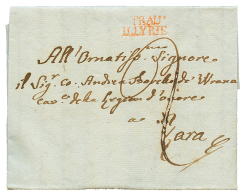 TRAU
ILLYRIE
All' Ornatiss. Signore
il Sig.r Co. Andrea Borelli de' Wrana
Cav.e della Legion d'onore
a
Zara